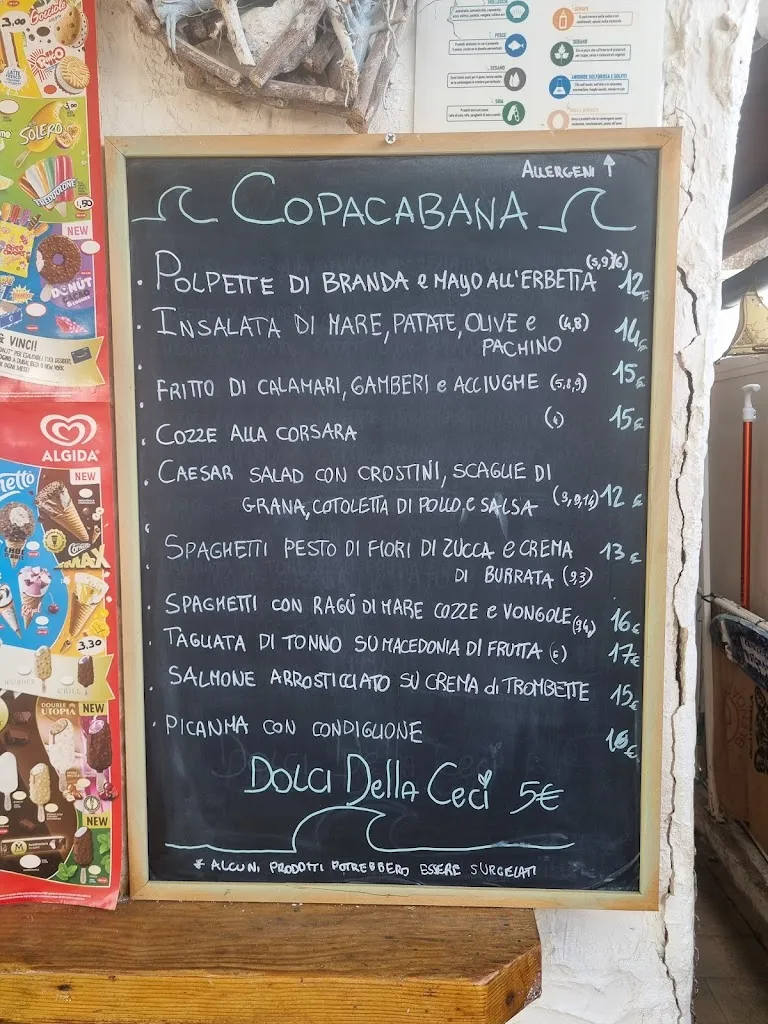 3,00
Gocciole
LATTE FRESCO
SOLERO
FREDDOLONE
1,50
NEW
DONUT
& VINCI!
ALGIDA
NEW
MAX
3.30
DOUBLE UTOPIA
NEW
NEW
PESCE
SESAMO
SOIA
SENAPE
SEDANO
ANIDRIDE SOLFOROSA E SOLFITI
ALLERGENI ↑
COPACABANA
· POLPETTE DI BRANDA e MAYO ALL'ERBETTA (5,9)(6) 12€
· INSALATA DI MARE, PATATE, OLIVE e (4,8) 14€
PACHINO
· FRITTO DI CALAMARI, GAMBERI e ACCIUGHE (5,8,9) 15€
· COZZE ALLA CORSARA (4) 15€
· CAESAR SALAD CON CROSTINI, SCAGLIE DI
GRANA, COTOLETTA DI POLLO, E SALSA (3,9,14) 12€
· SPAGHETTI PESTO DI FIORI DI ZUCCA e CREMA 13€
DI BURRATA (9,3)
· SPAGHETTI CON RAGÚ DI MARE COZZE e VONGOLE (9,4) 16€
· TAGLIATA DI TONNO SU MACEDONIA DI FRUTTA (6) 17€
· SALMONE ARROSTICCIATO SU CREMA di TROMBETTE 15€
· PICANHA CON CONDIGLIONE 16€
DOLCI DELLA CECI 5€
* ALCUNI PRODOTTI POTREBBERO ESSERE SURGELATI